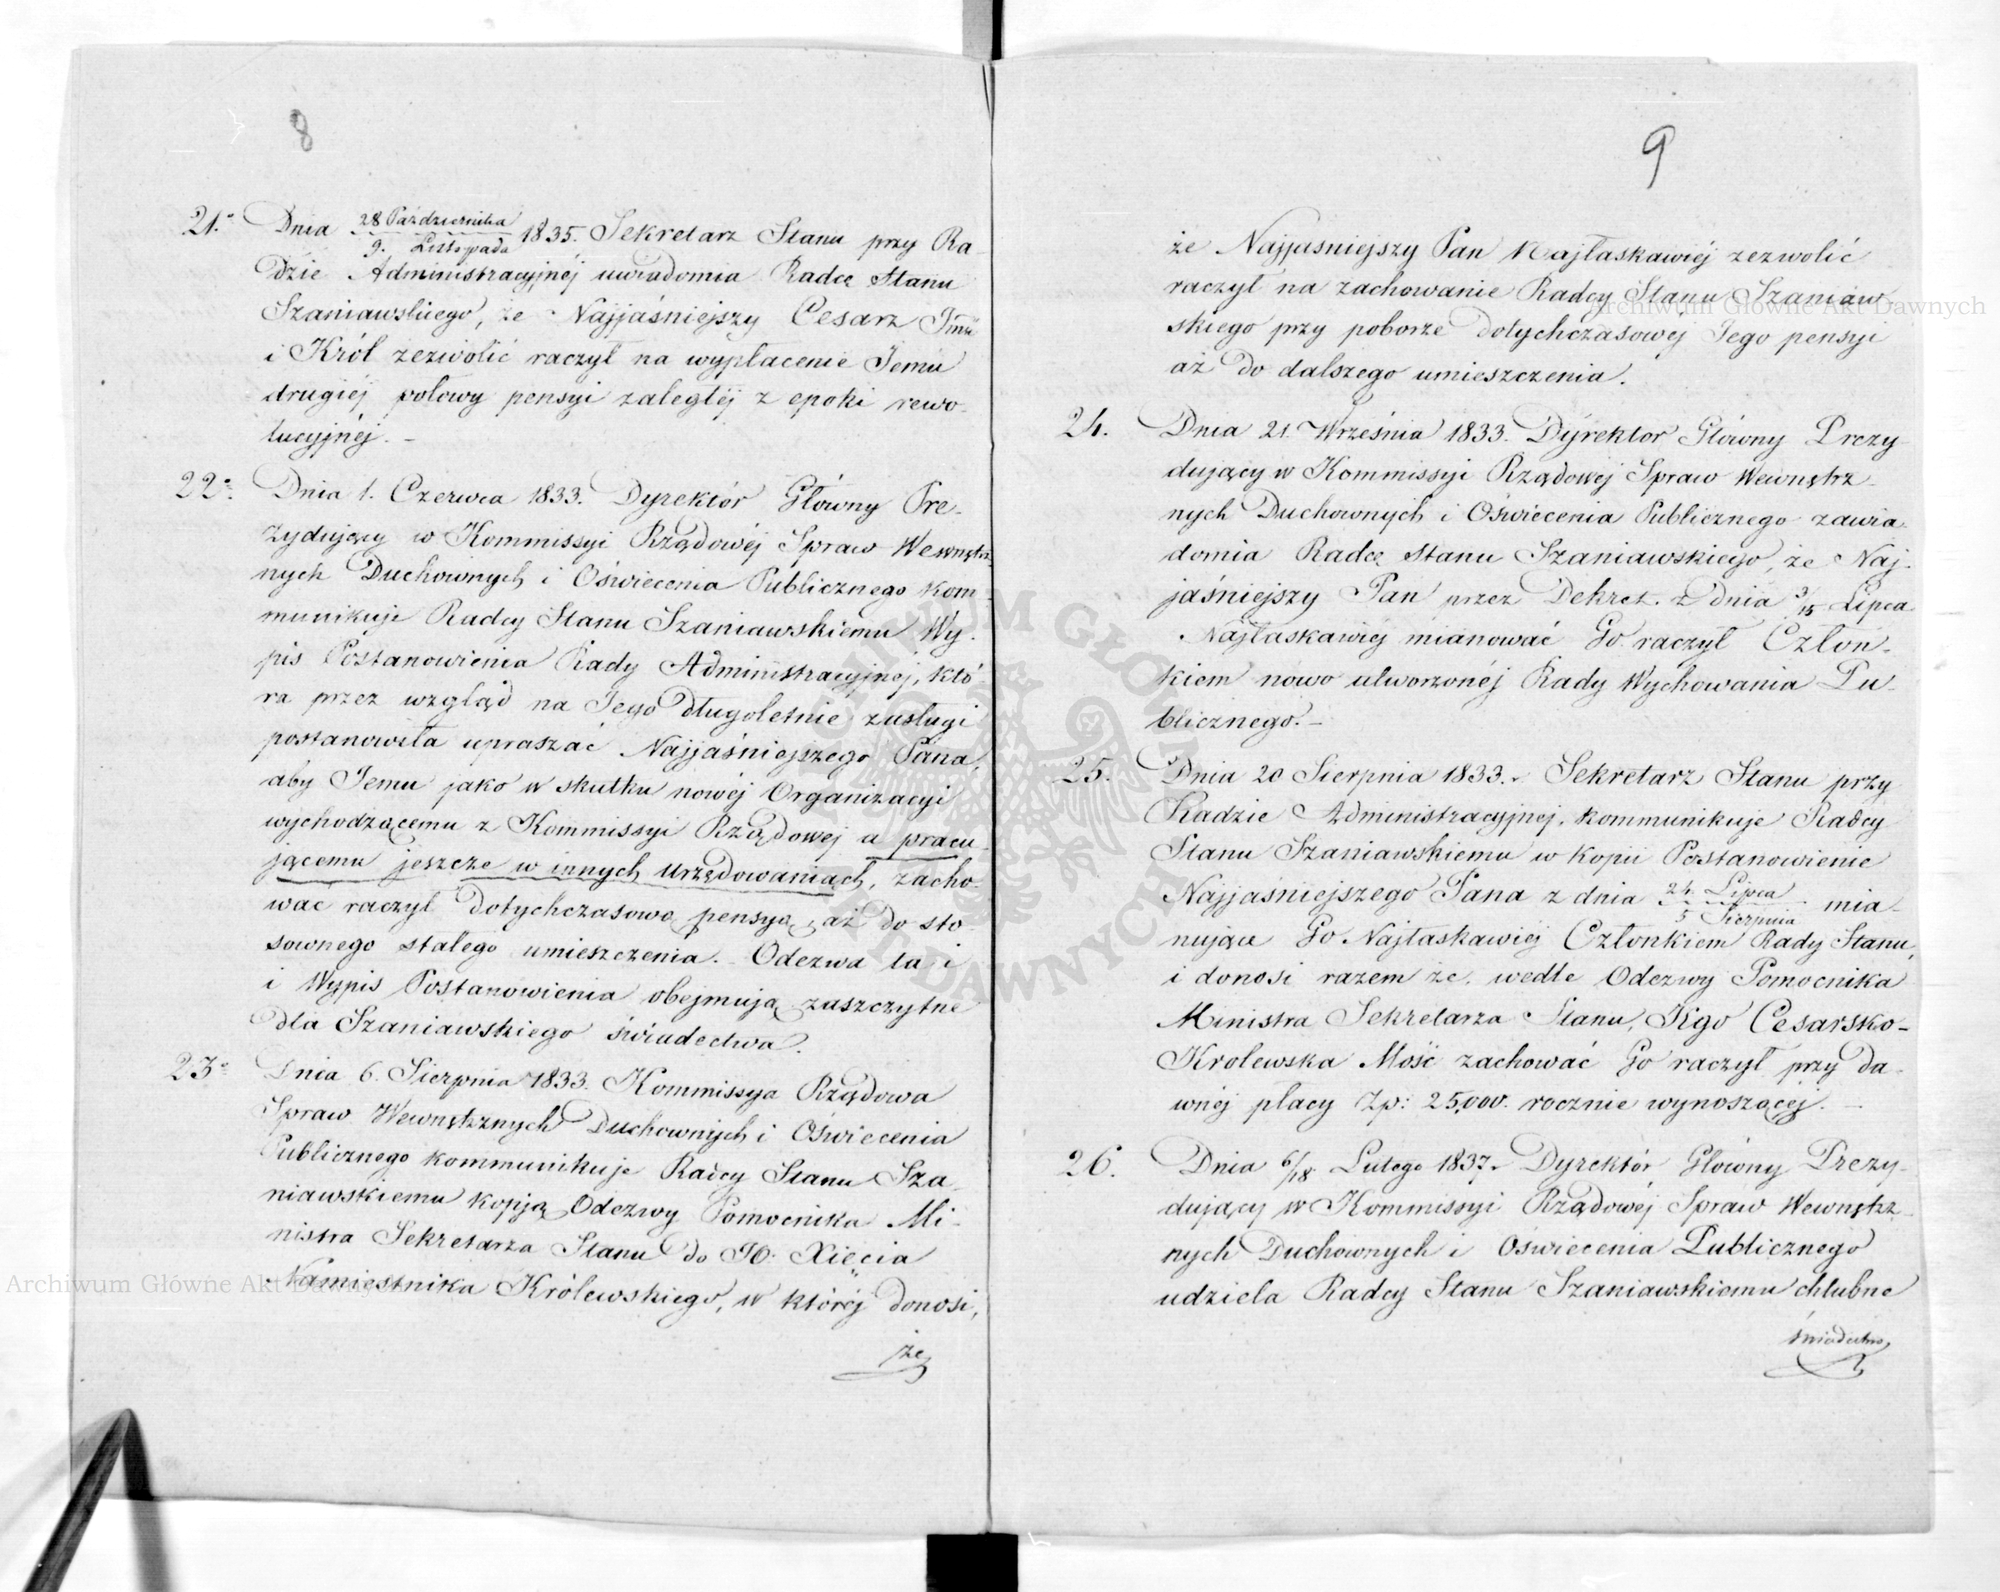 8
21.° Dnia 28 Października / 9. Listopada 1835. Sekretarz Stanu przy Ra-
dzie Administracyjnéj uwiadomia Radcę Stanu
Szaniawskiego, że Najjaśniejszy Cesarz Jmć
i Król zezwolić raczył na wypłacenie Jemu
drugiéj połowy pensyi zaległéj z epoki rewo-
lucyjnéj. –
22.° Dnia 1. Czerwca 1833. Dyrektór Główny Pre-
zydujący w Kommissyi Rządowéj Spraw Wewnętrz
nych Duchownych i Oświecenia Publicznego kom-
munikuje Radcy Stanu Szaniawskiemu Wy-
pis Postanowienia Rady Administracyjnéj, któ-
ra przez wzgląd na Jego długoletnie zasługi
postanowiła upraszać Najjaśniejszego Pana,
aby Jemu jako w skutku nowéj Organizacyi
wychodzącemu z Kommissyi Rządowéj a pracu-
jącemu jeszcze w innych Urzędowaniach, zacho-
wać raczył dotychczasową pensyą, aż do sto-
sownego stałego umieszczenia. – Odezwa ta i
i Wypis Postanowienia obejmują zaszczytne
dla Szaniawskiego świadectwa.
23.° Dnia 6. Sierpnia 1833. Kommissya Rządowa
Spraw Wewnętrznych Duchownych i Oświecenia
Publicznego kommunikuje Radcy Stanu Sza-
niawskiemu kopją Odezwy Pomocnika Mi-
nistra Sekretarza Stanu do JO. Xięcia
Namiestnika Królewskiego, w któréj donosi,
że
9
że Najjaśniejszy Pan Najłaskawiéj zezwolić
raczył na zachowanie Radcy Stanu Szaniaw-
skiego przy poborze dotychczasowéj Jego pensyi
aż do dalszego umieszczenia.
24. Dnia 21. Września 1833. Dyrektor Główny Prezy
dujący w Kommissyi Rządowéj Spraw Wewnętrz-
nych Duchownych i Oświecenia Publicznego zawia-
domia Radcę Stanu Szaniawskiego, że Naj-
jaśniejszy Pan przez Dekret z dnia 3/15 Lipca
Najłaskawiéj mianować Go raczył Człon-
kiem nowo utworzonéj Rady Wychowania Pu-
blicznego. –
25. Dnia 20 Sierpnia 1833. Sekretarz Stanu przy
Radzie Administracyjnéj, kommunikuje Radcy
Stanu Szaniawskiemu w kopii Postanowienie
Najjaśniejszego Pana z dnia 24. Lipca / 5 Sierpnia mia-
nujące Go Najłaskawiéj Członkiem Rady Stanu,
i donosi razem że, wedle Odezwy Pomocnika
Ministra Sekretarza Stanu, Jego Cesarsko-
Królewska Mość zachować Go raczył przy da-
wnéj płacy Zp: 25,000. rocznie wynoszącéj. –
26. Dnia 6/18 Lutego 1837. Dyrektór Główny Prezy-
dujący w Kommissyi Rządowéj Spraw Wewnętrz-
nych Duchownych i Oświecenia Publicznego
udziela Radcy Stanu Szaniawskiemu chlubne
świadectwo
Archiwum Główne Akt Dawnych
Archiwum Główne Akt Dawnych
ARCHIWUM GŁÓWNE AKT DAWNYCH